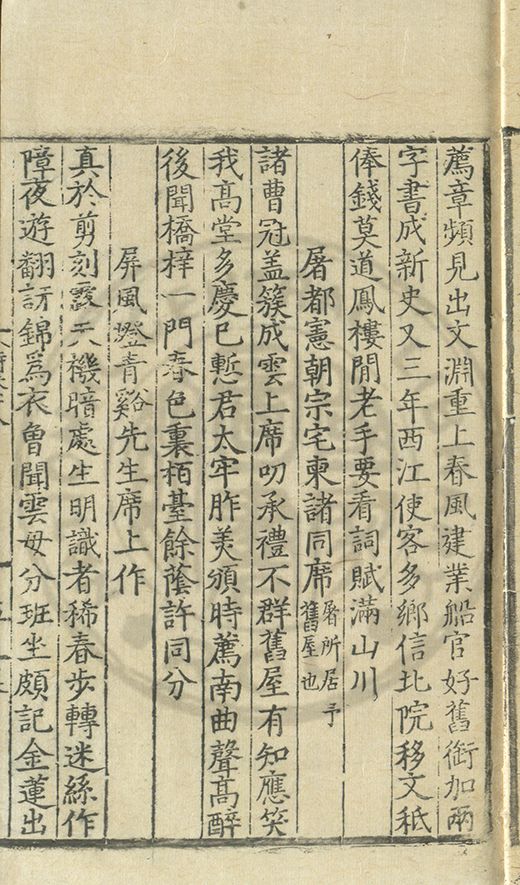 薦章頻見出文淵重上春風建業船官好舊銜加兩
字書成新史又三年西江使客多鄉信北院移文秪
俸錢莫道鳳樓閒老手要看詞賦滿山川
屠都憲朝宗宅柬諸同席屠所居予舊屋也
諸曹冠盖簇成雲上席叨承禮不群舊屋有知應笑
我高堂多慶已慙君太牢胙美頒時薦南曲聲高醉
後聞橋梓一門春色裏栢臺餘蔭許同分
屏風燈青谿先生席上作
真於剪刻露天機暗處生明識者稀春步轉迷絲作
障夜遊翻訝錦爲衣魯聞雲母分班坐頗記金蓮出